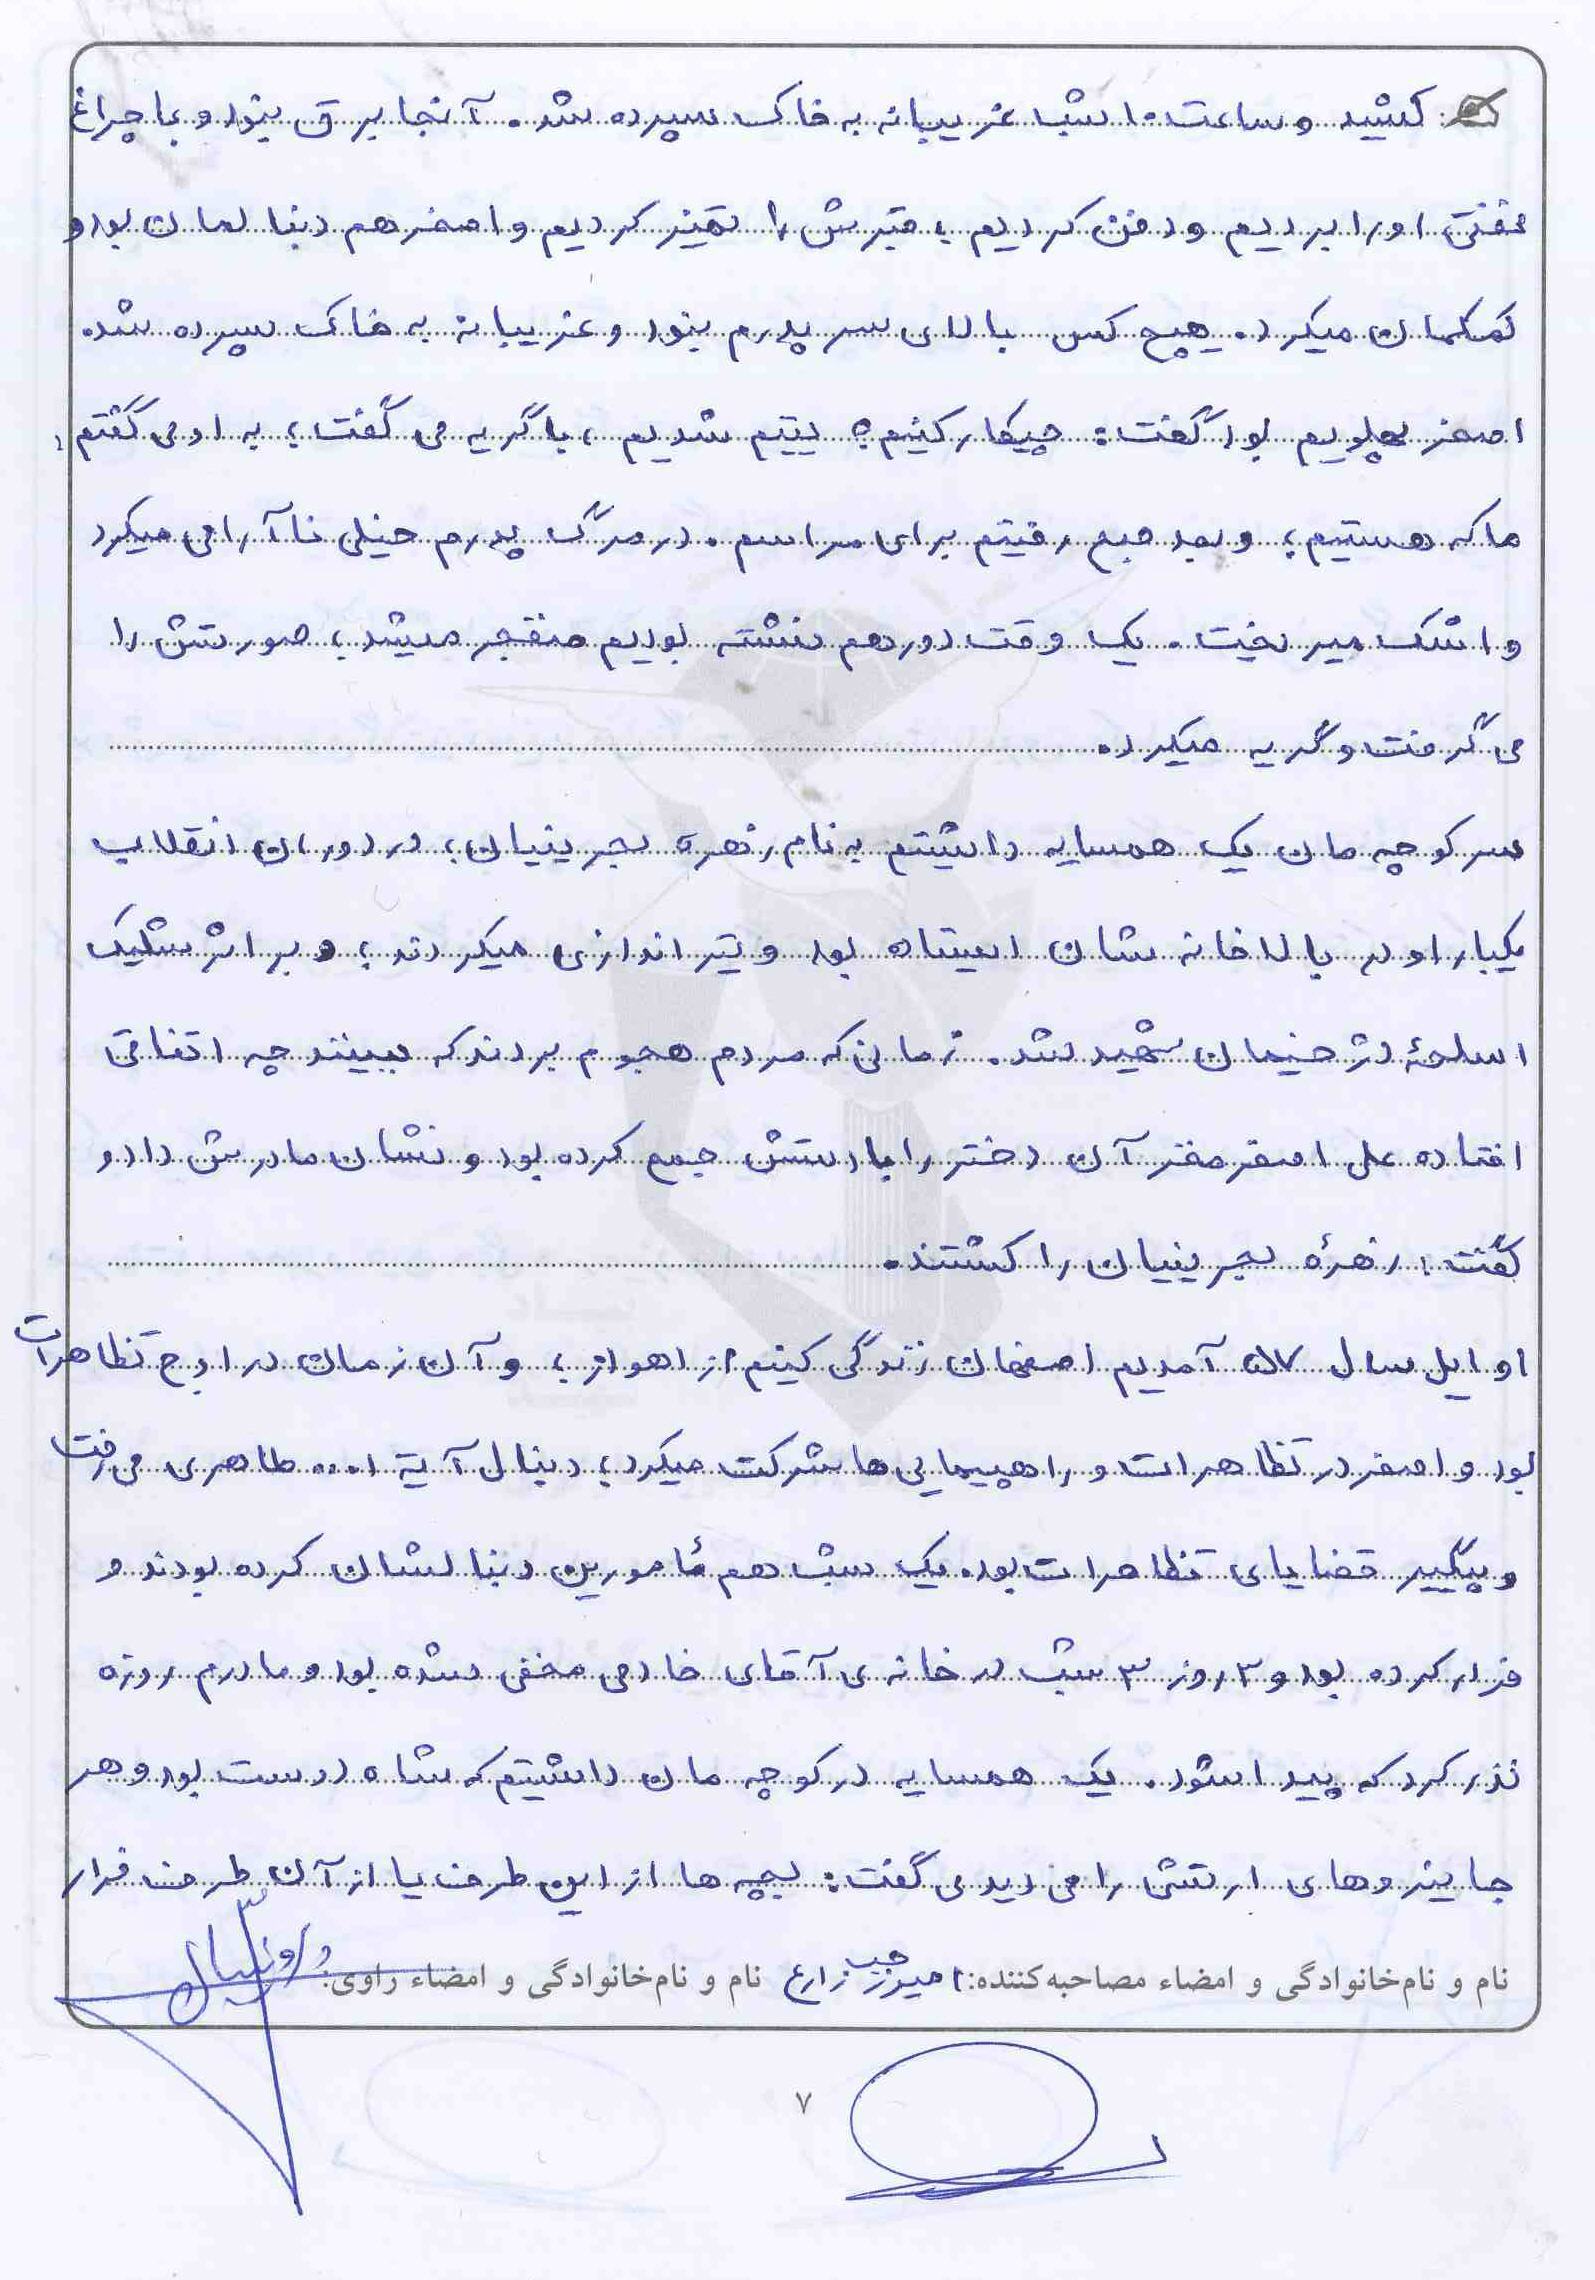 کشید و ساعت ۱۰ شب غریبانه به خاک سپرده شد. آنجا برق نبود و با چراغ
نفتی او را بردیم و دفن کردیم، قبرش را تمیز کردیم و اصغر هم دنبالمان بود و
کمکمان میکرد. هیچ کس بالای سر پدرم نبود و غریبانه به خاک سپرده شده
اصغر پهلویم بود گفت: چیکار کنیم؟ یتیم شدیم، با گریه می گفت؛ به او می گفتم:
ما که هستیم؛ و بعد صبح رفتیم برای مراسم. در مرگ پدرم خیلی ناآرامی میکرد
و اشک میریخت. یک وقت دور هم نشسته بودیم منفجر میشد، صورتش را
می گرفت و گریه میکرد.
سر کوچه مان یک همسایه داشتیم به نام زهره بحرینیان؛ در دوران انقلاب
یکبار او در بالاخانه شان ایستاده بود و تیراندازی میکردند؛ و بر اثر شلیک
اسلحهٔ دژخیمان شهید شد. زمانی که مردم هجوم بردند که ببینند چه اتفاقی
افتاده علی اصغر مغز آن دختر را با دستش جمع کرده بود و نشان مادرش داد و
گفت: زهرهٔ بحرینیان را کشتند.
اوایل سال ۵۷ آمدیم اصفهان زندگی کنیم از اهواز؛ و آن زمان در اوج تظاهرات
بود و اصغر در تظاهرات و راهپیمایی ها شرکت میکرد؛ دنبال آیة ا... طاهری می رفت
و پیگیر قضایای تظاهرات بود. یک شب هم مأمورین دنبالشان کرده بودند و
فرار کرده بود و ۳ روز ۳ شب در خانه ی آقای خادمی مخفی شده بود و مادرم روزه
نذر کرد که پیدا شود. یک همسایه در کوچه مان داشتیم که شاه دوست بود و هر
جا نیروهای ارتش را می دید می گفت: بچه ها از این طرف یا از آن طرف فرار
نام و نام‌خانوادگی و امضاء مصاحبه‌کننده: زارع نام و نام‌خانوادگی و امضاء راوی:
۷